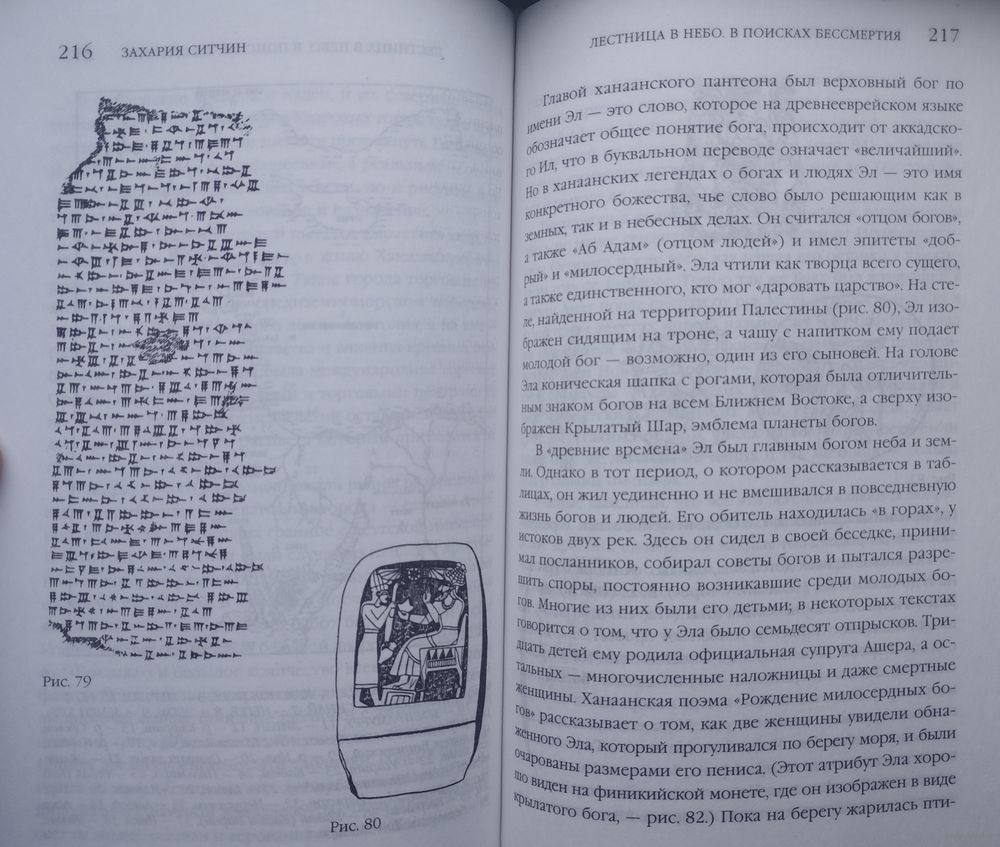 216 ЗАХАРИЯ СИТЧИН
Рис. 79
Рис. 80
ЛЕСТНИЦА В НЕБО. В ПОИСКАХ БЕССМЕРТИЯ 217
Главой ханаанского пантеона был верховный бог по
имени Эл — это слово, которое на древнееврейском языке
обозначает общее понятие бога, происходит от аккадско-
го Ил, что в буквальном переводе означает «величайший».
Но в ханаанских легендах о богах и людях Эл — это имя
конкретного божества, чье слово было решающим как в
земных, так и в небесных делах. Он считался «отцом богов»,
а также «Аб Адам» (отцом людей») и имел эпитеты «доб-
рый» и «милосердный». Эла чтили как творца всего сущего,
а также единственного, кто мог «даровать царство». На сте-
ле, найденной на территории Палестины (рис. 80), Эл изо-
бражен сидящим на троне, а чашу с напитком ему подает
молодой бог — возможно, один из его сыновей. На голове
Эла коническая шапка с рогами, которая была отличитель-
ным знаком богов на всем Ближнем Востоке, а сверху изо-
бражен Крылатый Шар, эмблема планеты богов.
В «древние времена» Эл был главным богом неба и зем-
ли. Однако в тот период, о котором рассказывается в таб-
лицах, он жил уединенно и не вмешивался в повседневную
жизнь богов и людей. Его обитель находилась «в горах», у
истоков двух рек. Здесь он сидел в своей беседке, прини-
мал посланников, собирал советы богов и пытался разре-
шить споры, постоянно возникавшие среди молодых бо-
гов. Многие из них были его детьми; в некоторых текстах
говорится о том, что у Эла было семьдесят отпрысков. Три-
дцать детей ему родила официальная супруга Ашера, а ос-
тальных — многочисленные наложницы и даже смертные
женщины. Ханаанская поэма «Рождение милосердных бо-
гов» рассказывает о том, как две женщины увидели обна-
женного Эла, который прогуливался по берегу моря, и были
очарованы размерами его пениса. (Этот атрибут Эла хоро-
шо виден на финикийской монете, где он изображен в виде
крылатого бога, — рис. 82.) Пока на берегу жарилась пти-